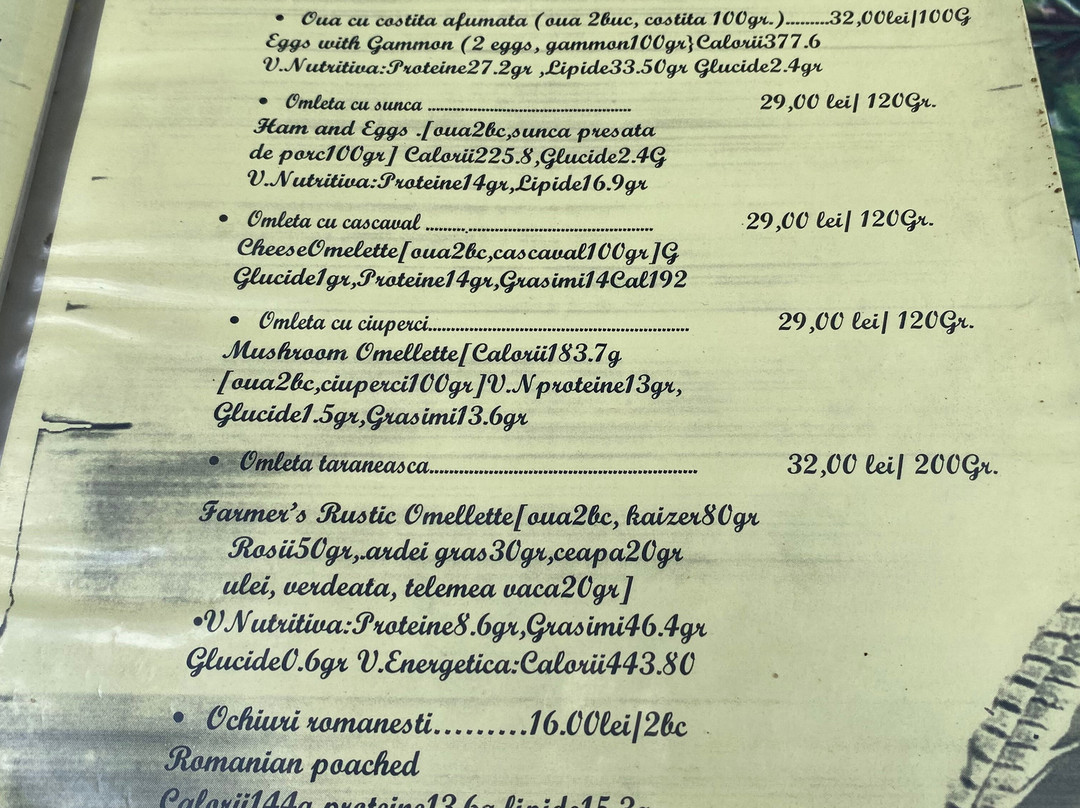 • Oua cu costita afumata (oua 2buc, costita 100gr.).........32,00lei|100G
Eggs with Gammon (2 eggs, gammon100gr}Calorii377.6
V.Nutritiva:Proteine27.2gr ,Lipide33.50gr Glucide2.4gr
• Omleta cu sunca .................................................. 29,00 lei| 120Gr.
Ham and Eggs .[oua2bc,sunca presata
de porc100gr] Calorii225.8,Glucide2.4G
V.Nutritiva:Proteine14gr,Lipide16.9gr
• Omleta cu cascaval ........................................................ 29,00 lei| 120Gr.
CheeseOmelette[oua2bc,cascaval100gr]G
Glucide1gr,Proteine14gr,Grasimi14Cal192
• Omleta cu ciuperci................................................................ 29,00 lei| 120Gr.
Mushroom Omellette[Calorii183.7g
[oua2bc,ciuperci100gr]V.Nproteine13gr,
Glucide1.5gr,Grasimi13.6gr
• Omleta taraneasca................................................................ 32,00 lei| 200Gr.
Farmer's Rustic Omellette[oua2bc, kaizer80gr
Rosii50gr,.ardei gras30gr,ceapa20gr
ulei, verdeata, telemea vaca20gr]
•VNutritiva:Proteine8.6gr,Grasimi46.4gr
Glucide0.6gr V.Energetica:Calorii443.80
• Ochiuri romanesti.........16.00lei|2bc
Romanian poached
Calorii144g proteine13.6g lipide15.2g